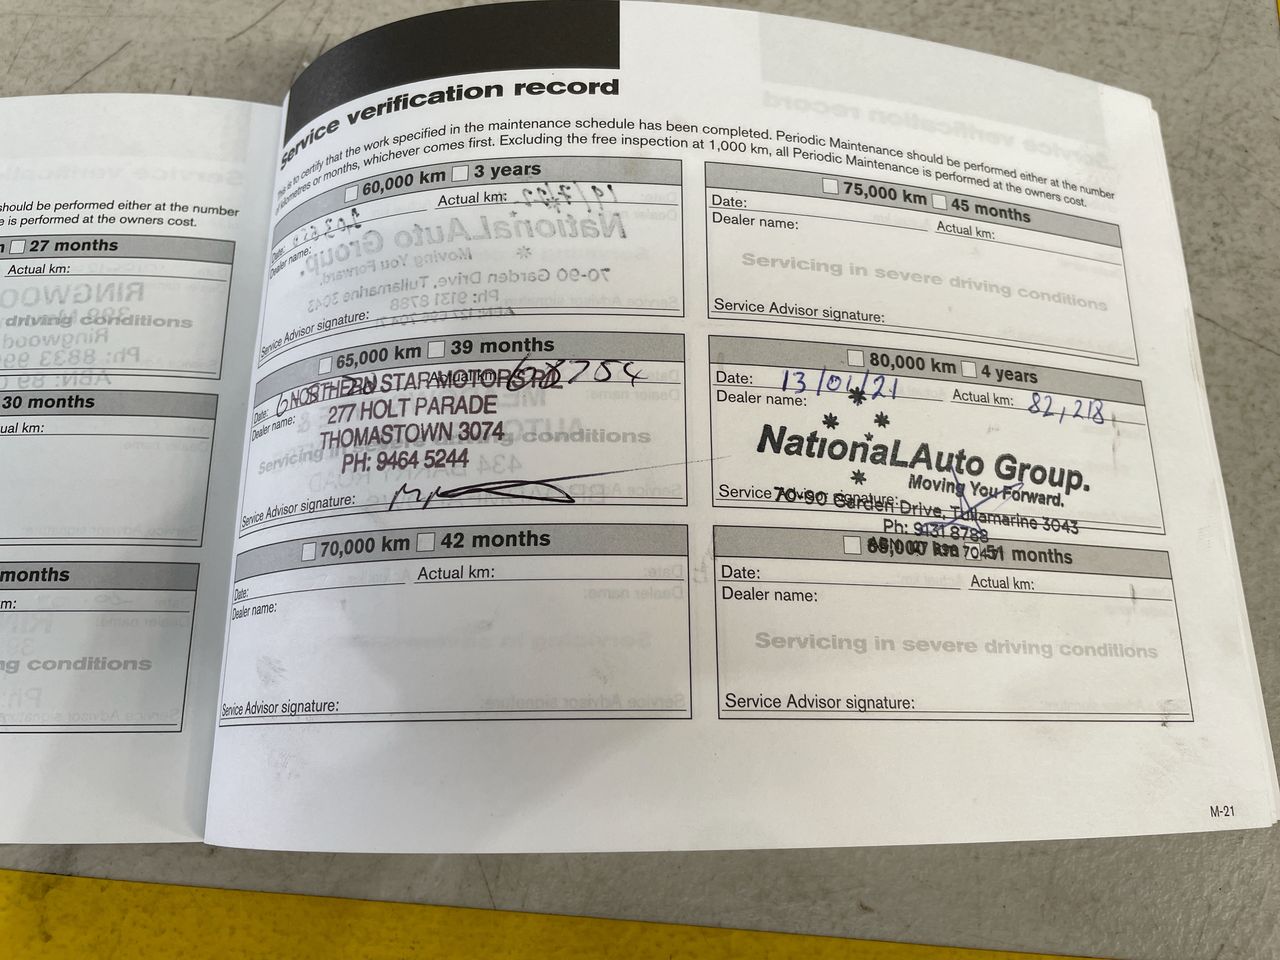 should be performed either at the number
e is performed at the owners cost.
27 months
Actual km:
driving conditions
30 months
ual km:
months
m:
ng conditions
Service verification record
This is to certify that the work specified in the maintenance schedule has been completed. Periodic Maintenance should be performed either at the number
of kilometres or months, whichever comes first. Excluding the free inspection at 1,000 km, all Periodic Maintenance is performed at the owners cost.
60,000 km 3 years
Date:
Actual km:
Dealer name:
Service Advisor signature:
65,000 km 39 months
Date:
Actual km: 68754
Dealer name:
NORTHERN STAR MOTORS P/L
277 HOLT PARADE
THOMASTOWN 3074
PH: 9464 5244
Servicing in severe driving conditions
Service Advisor signature:
70,000 km 42 months
Date:
Actual km:
Dealer name:
Service Advisor signature:
75,000 km 45 months
Date:
Actual km:
Dealer name:
Servicing in severe driving conditions
Service Advisor signature:
80,000 km 4 years
Date: 13/01/21
Actual km: 82,218
Dealer name:
NationaLAuto Group.
Moving You Forward.
Service Advisor signature:
70-90 Garden Drive, Tullamarine 3043
Ph: 9131 8788
85,000 km 51 months
Date:
Actual km:
Dealer name:
Servicing in severe driving conditions
Service Advisor signature:
M-21